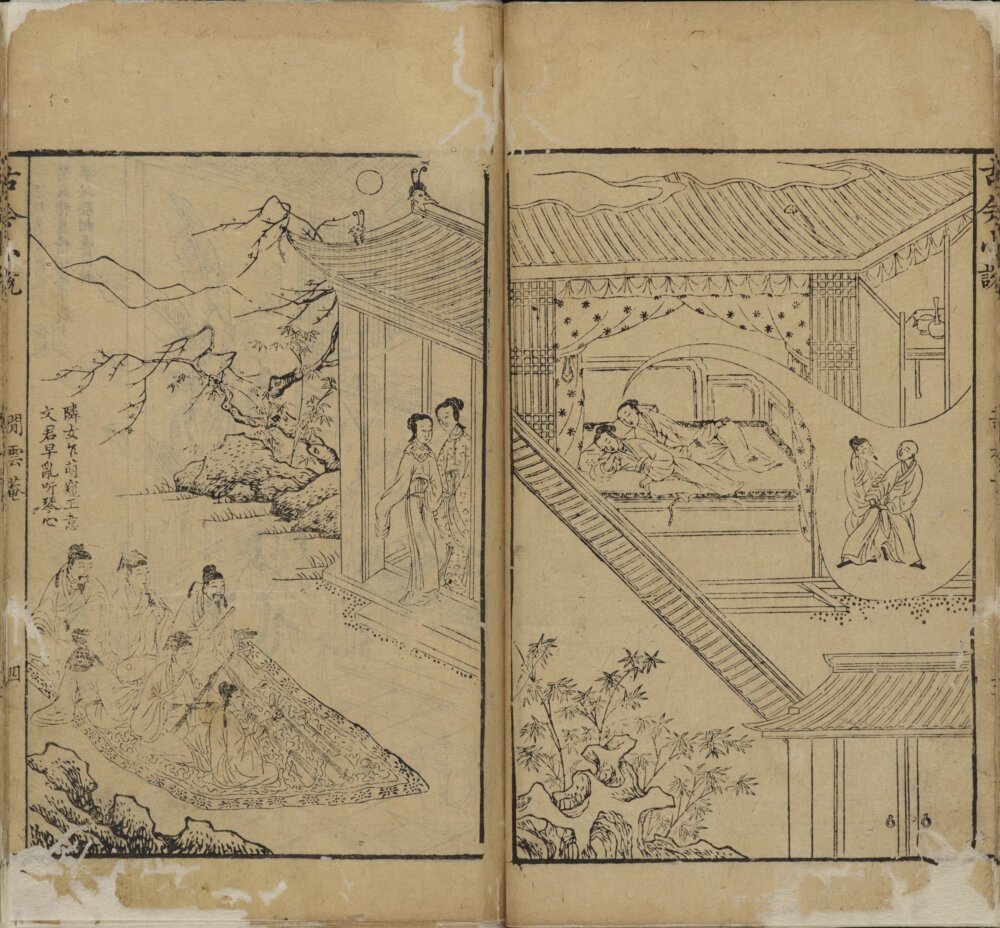 古今小說
隣女乍萌窺玉意
文君早亂听琴心
古今小說
閒雲菴
四